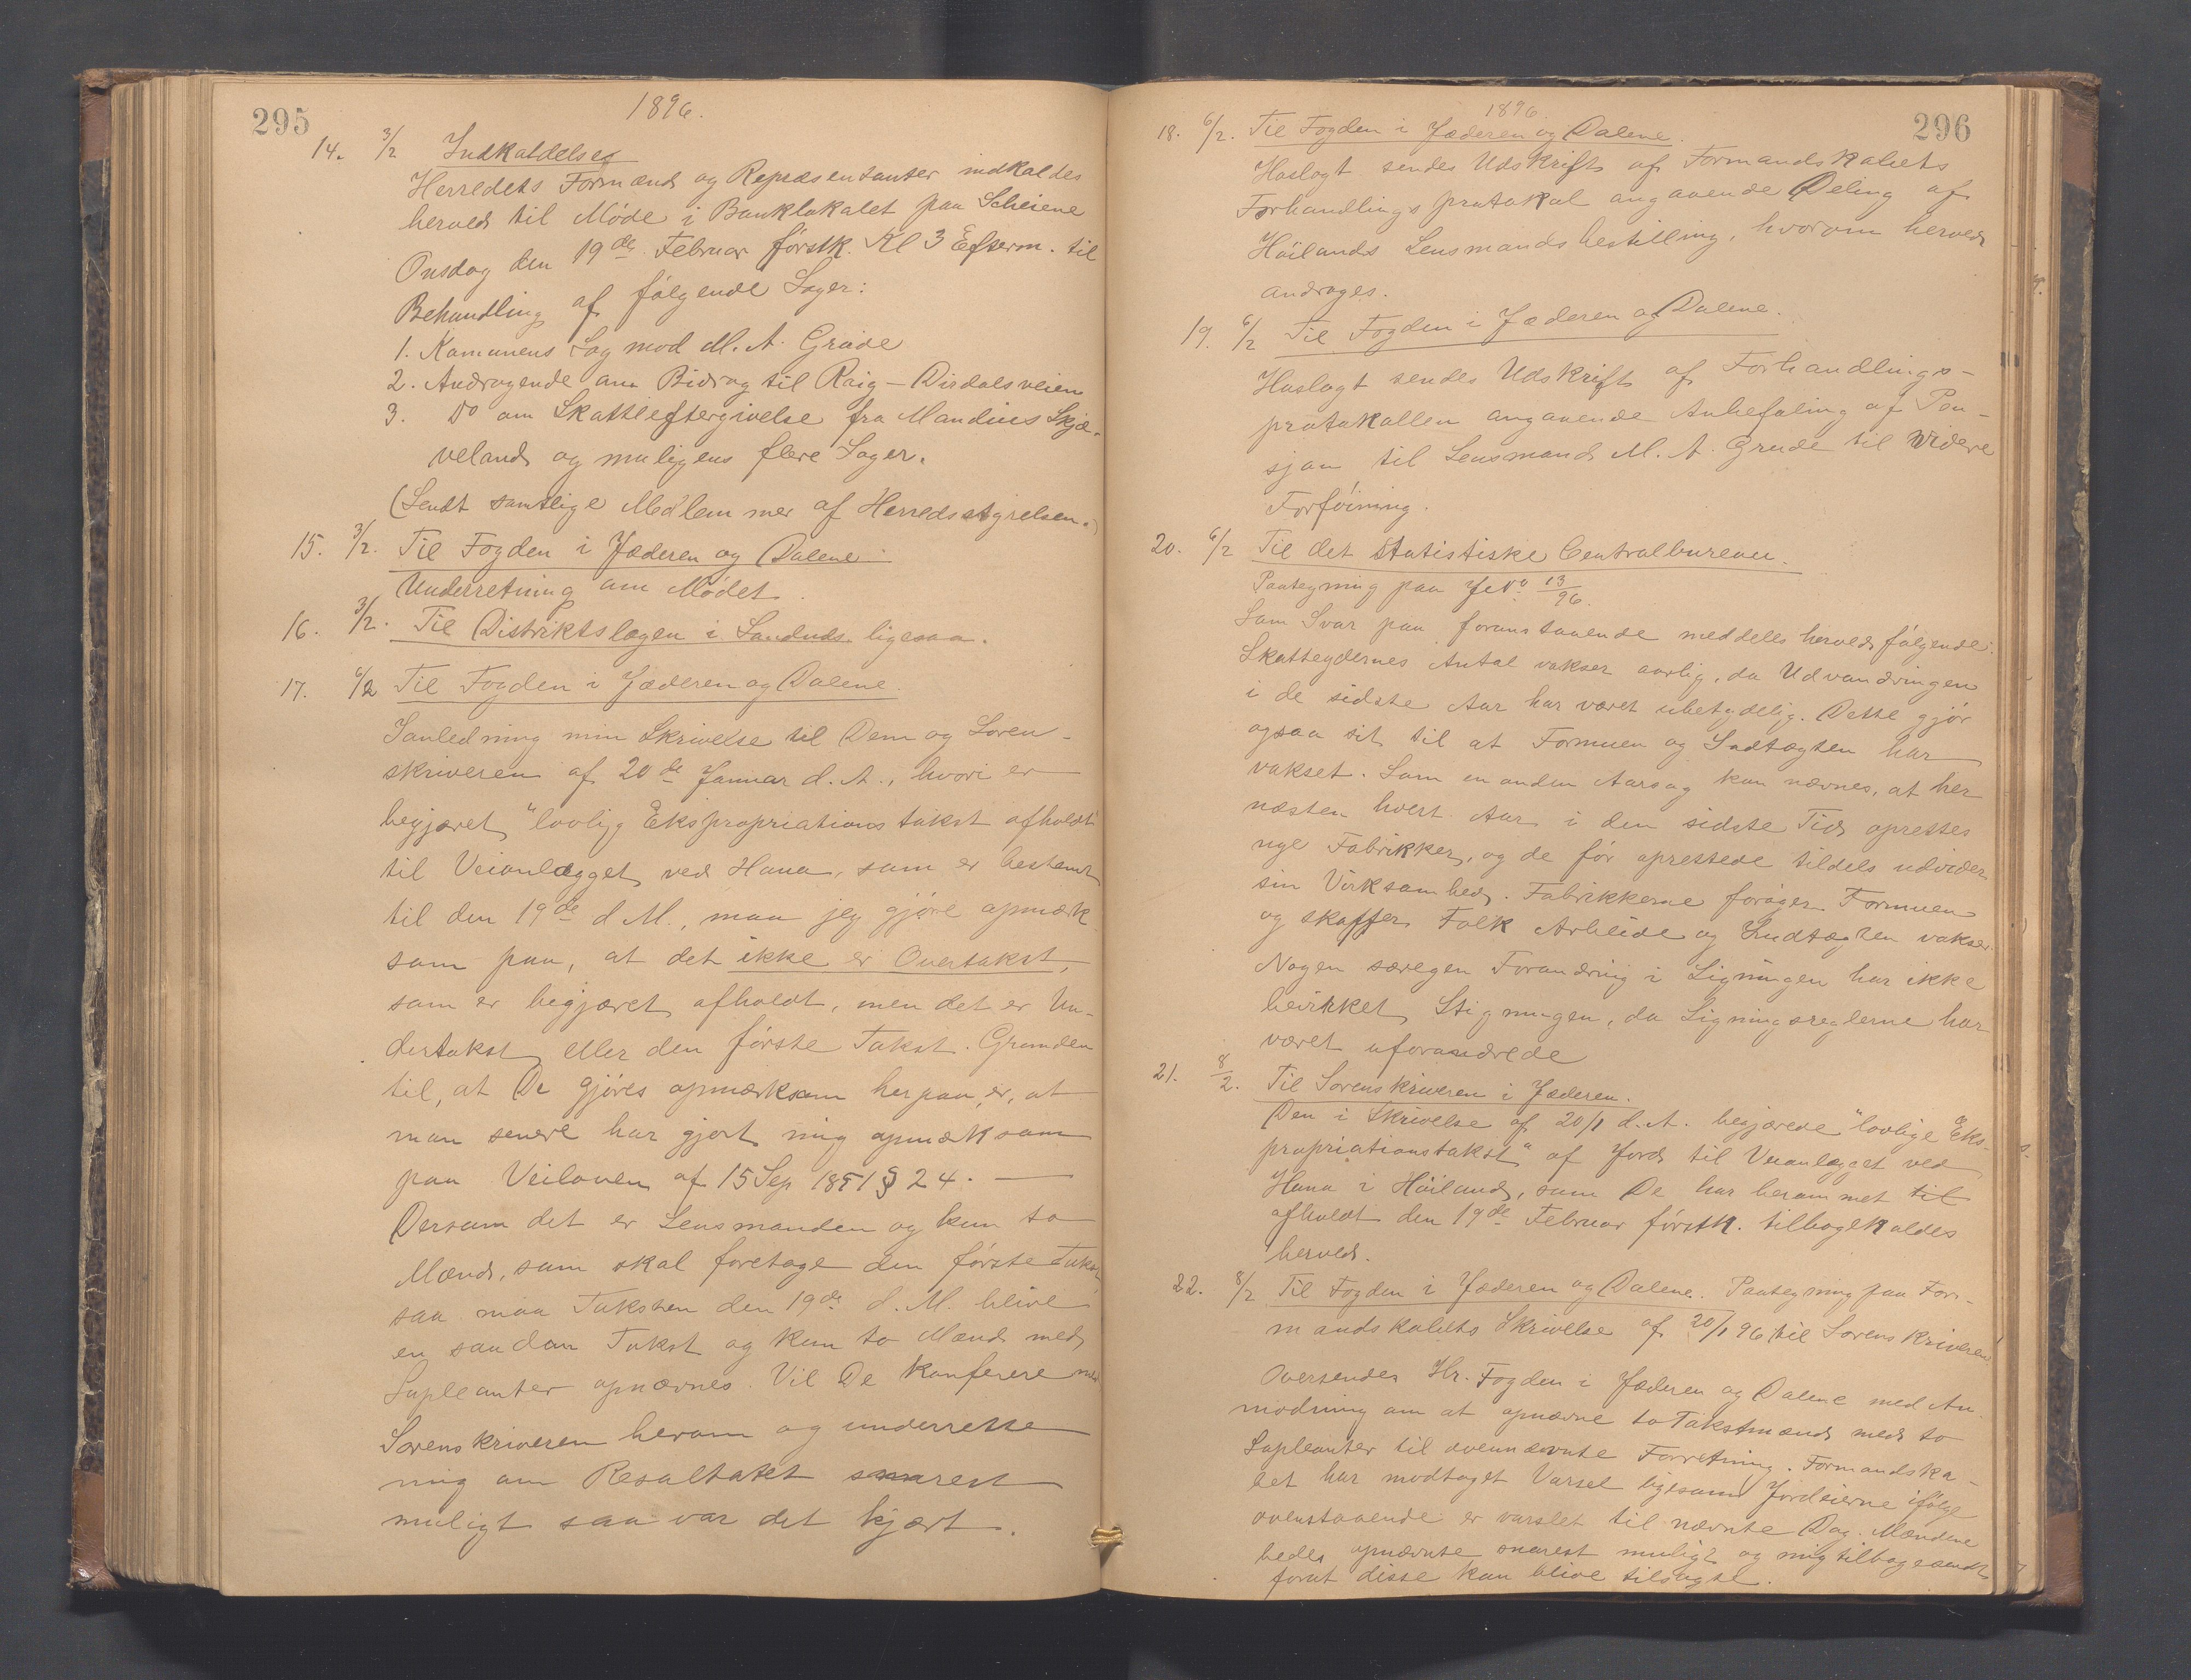 295
1896.
14. 3/2 Indkaldelse
Herredets Formænd og Repræsentanter indkaldes
herved til Møde i Banklokalet paa Scheiene
Onsdag den 19de Februar førstk. Kl 3 Efterm. til
Behandling af følgende Sager:
1. Kommunens Sag mod M. A. Grude
2. Andragende om Bidrag til Raig - Dirdalsveien
3. Do om Skatteeftergivelse fra Mandius Skjæ-
veland og muligens flere Sager.
(Sendt samtlige Medlemmer af Herredsstyrelsen.)
15. 3/2. Til Fogden i Jæderen og Dalene
Underretning om Mødet.
16. 3/2. Til Distriktslægen i Sandnds. ligesaa.
17. 6/2 Til Fogden i Jæderen og Dalene.
Ianledning min Skrivelse til Dem og Soren-
skriveren af 20de Januar d. A., hvori er
begjæret "lovlig Ekspropriationstakst afholdt
til Veianlægget ved Hana, som er bestemt
til den 19de d M., maa jeg gjøre opmærk
som paa, at det ikke er Overtakst,
som er begjæret afholdt, men det er Un-
dertakst eller den første Takst. Grunden
til, at De gjøres opmærksom herpaa, er, at
man senere har gjort mig opmærksom
paa Veiloven af 15 Sep 1851 § 24. —
Dersom det er Lensmanden og kun to
Mænd, som skal foretage den første Takst,
saa maa Taksten den 19de d. M. blive
en saadan Takst og kun to Mænd med
Supleanter opnævnes. Vil De konferere med
Sorenskriveren herom og underrette
mig om Resultatet snarest
muligt saa var det kjært.
1896
296
18. 6/2. Til Fogden i Jæderen og Dalene.
Hoslagt sendes Udskrift af Formandskabets
Forhandlingsprotokol angaaende Deling af
Høilands Lensmandsbestilling, hvorom herved
andrages.
19. 6/2 Til Fogden i Jæderen og Dalene.
Hoslagt sendes Udskrift af Forhandlings-
protokollen angaaende Anbefaling af Pen-
sjon til Lensmand M. A. Grude til videre
Forføining.
20. 6/2 Til det Statistiske Centralbureau.
Paategning paa JNo 13/96.
Som Svar paa foranstaaende meddeles herved følgende:
Skatteydernes Antal vokser aarlig, da Udvandringen
i de sidste Aar har været ubetydelig. Dette gjør
ogsaa sit til at Formuen og Indtægten har
vokset. Som en anden Aarsag kan nævnes, at her
næsten hvert Aar i den sidste Tid oprettes
nye Fabrikker, og de før oprettede tildels udvider
sin Virksomhed. Fabrikkerne forøger Formuen
og skaffer Folk Arbeide og Indtægten vokser.
Nogen særegen Forandring i Ligningen har ikke
bevirket Stigningen, da Ligningsreglerne har
været uforandrede
21. 8/2. Til Sorenskriveren i Jæderen.
Den i Skrivelse af 20/1 d. A. begjærede "lovlige Eks-
propriationstakst" af Jord til Veianlægget ved
Hana i Høiland, som De har berammet til
afholdt den 19de Februar førstk. tilbagekaldes
herved.
22. 8/2 Til Fogden i Jæderen og Dalene. Paategning paa For-
mandskabets Skrivelse af 20/1 96 til Sorenskriveren
Oversendes Hr. Fogden i Jæderen og Dalene med An-
modning om at opnævne to Takstmænd med to
Supleanter til ovennævnte Forretning. Formandska-
bet har modtaget Varsel ligesom Jordeierne ifølge
ovenstaaende er varslet til nævnte Dag. Mændene
bedes opnævnte snarest muligt og mig tilbagesendt
forat disse kan blive tilsagte.